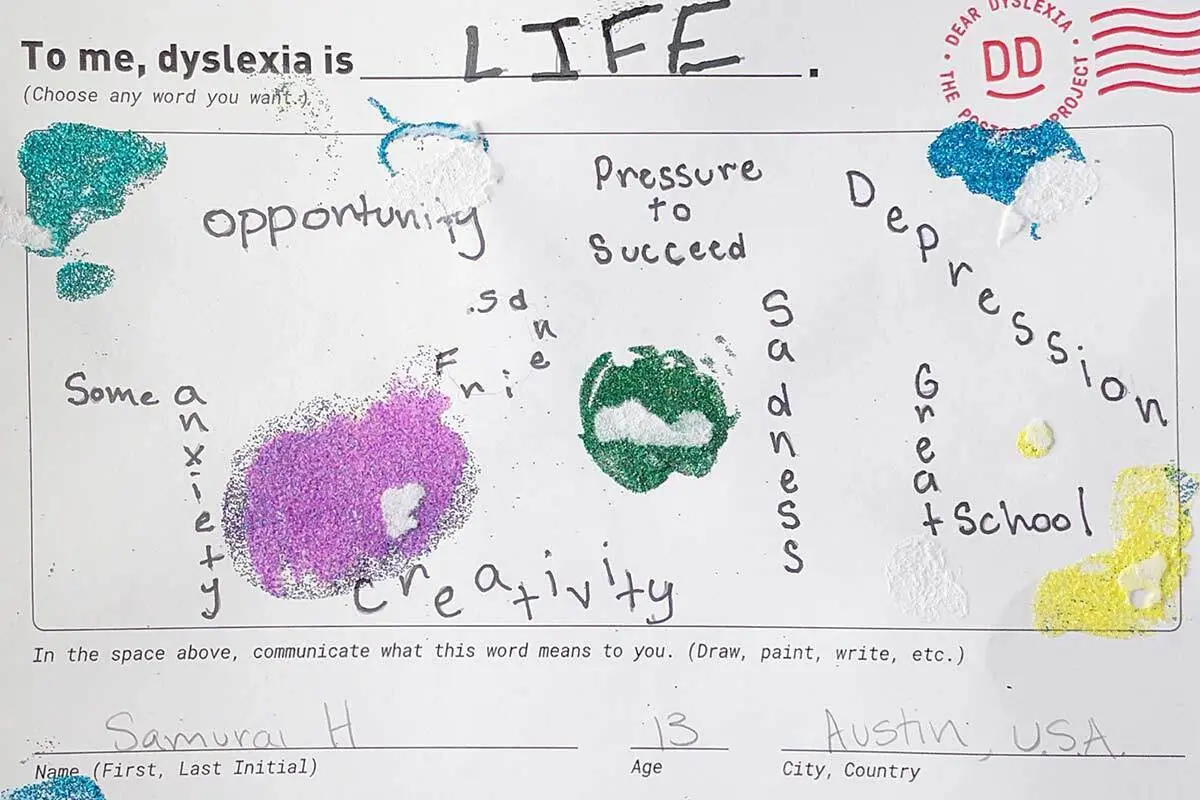 To me, dyslexia is LIFE.
(Choose any word you want.)
DEAR DYSLEXIA
DD
THE POSTCARD PROJECT
opportunity
Pressure
to
Succeed
Depression
Friends.
Sadness
Some anxiety
Great School
creativity
In the space above, communicate what this word means to you. (Draw, paint, write, etc.)
Samurai H
13
Austin, U.S.A.
Name (First, Last Initial)
Age
City, Country